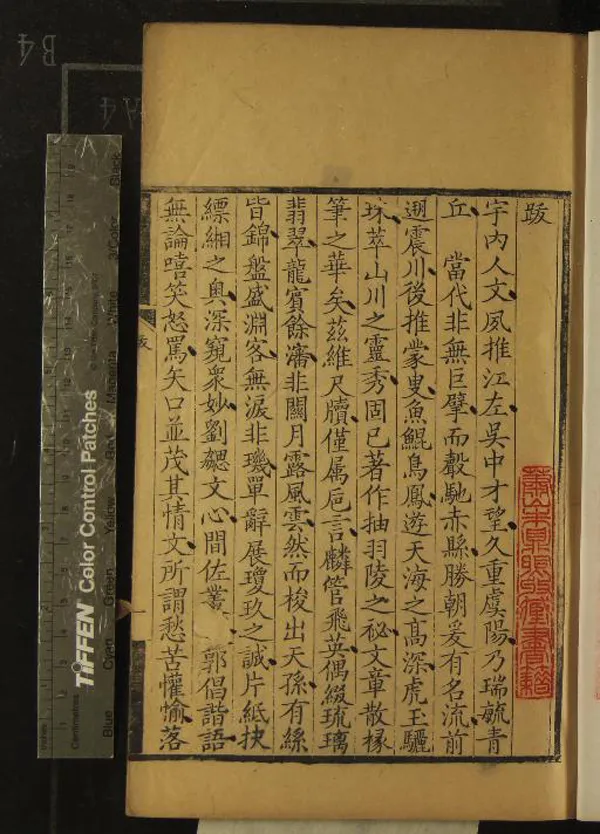 跋
宇內人文夙推江左吳中才望久重虞陽乃瑞毓青
丘　當代非無巨擘而轂馳赤縣勝朝爰有名流前
遡震川後推蒙叟魚鯤鳥鳳遊天海之高深虎玉驪
珠萃山川之靈秀固已著作抽羽陵之秘文章散椽
筆之華矣茲維尺牘僅属巵言麟管飛英偶綴琉璃
翡翠龍賓餘瀋非關月露風雲然而梭出天孫有絲
皆錦盤盛淵客無淚非璣單辭展瓊玖之誠片紙抉
縹緗之奧深窺衆妙劉勰文心間佐叢　郭倡諧語
無論嘻笑怒罵矢口並茂其情文所謂愁苦懽愉落
跋
TIFFEN Color Control Patches
Blue Cyan Green Yellow Red Magenta White 3/Color Black
Inches
Centimetres
B4
A4